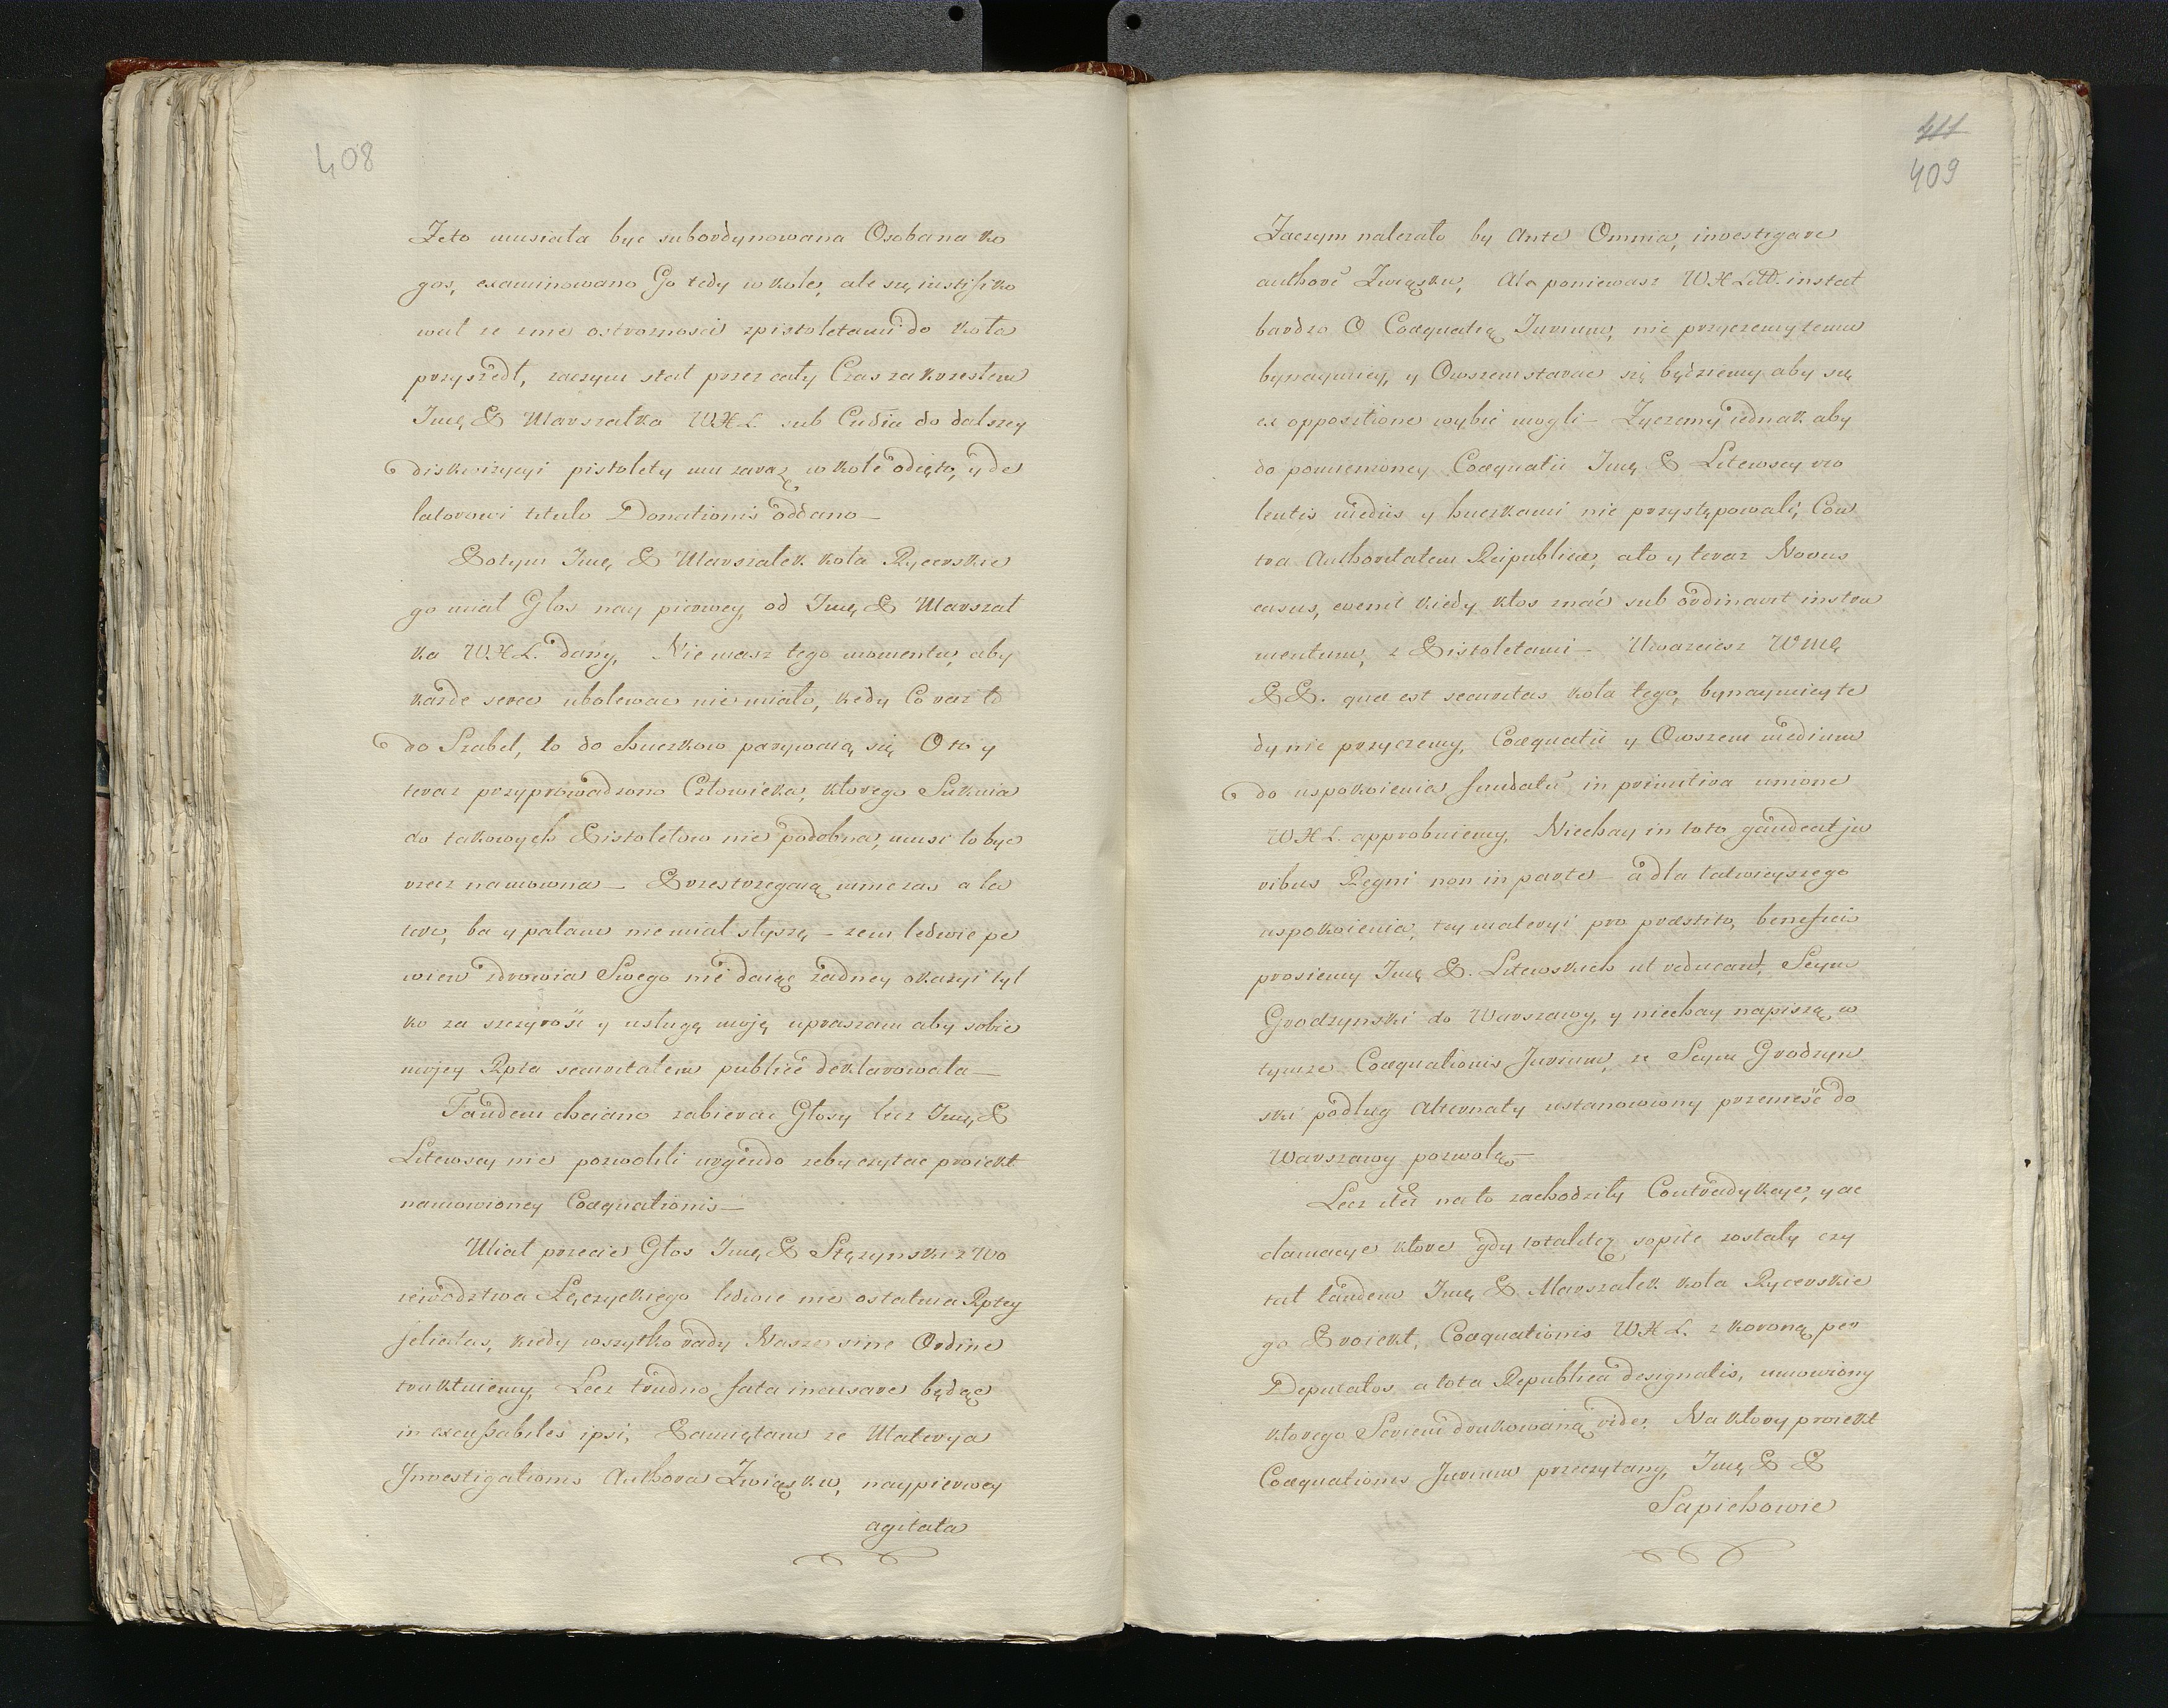 408
Zeto musiała byc subordynowana Osoba na ko
gos, examinowano Go tedy w kole, ale się iustifiko
wał ze z ostroznosci z pistoletami do koła
przyszedł, zaczym stał przez cały Czas za krzesłem
Jmę P Marszałka WXL sub Cudia do dalszey
diskwizycyi pistolety mu zaraz w kole odięto, y de
latorowi titulo Donationis oddano—
Potym Jmę P Marszałek koła Rycerskie
go miał Głos nay pierwey, od Jmę P Marszał
ka WXL. dany, Nie masz tego momentu, aby
karde serce ubolewac nie miało, kedy Co raz to
do Szabel, to do huczkow porywaią się Oto y
teraz przyprowadzono Człowieka, ktorego Suknia
do takowych Pistoletow nie podobna, musi to byc
rzecz namowna— Przestrzegaią mnie zas a la
tere, ba y palam nie miał słyszę – zem ledwie pe
wien zdrowia Swego nie daiąc zadney okazyi tyl
ko za szczyrośc y usługę moję upraszam aby sobie
mojey Rpta securitatem publice deklarowała—
Tandem chciano zabierac Głosy lecz Jmę P
Litewscy nie pozwolili urgendo zeby czytac proiekt
namowioney Coæquationis—
Miał przecie Głos Jmę P Stęzynski z Wo
iewodztwa Łęczyckiego ledwie nie ostatnia Rptey
felicitas, kiedy wszytko rady Nasze sine Ordine
traktuiemy, Lecz trudno fata incusare będąc
in excusabiles ipsi, Pamiętam ze Materya
Investigationis Authora Związku, naypierwey
agitata
411
409
Zaczym nalezało by Ante Omnia, investigare
authore Związku, Ale poniewasz WXLitt. instat
bardzo O Coæquatią Jurium, nie przyczemy temu
bynaymniey, y Owszem starac się będziemy aby się
ex oppositione wybic mogli – Zyczemy iednak aby
do pomienioney Coæquatii Jmę P Litewscy vio
lentis mediis y huczkami nie przystępowali, Con
tra Authoritatem Reipublicæ, ato y teraz Novus
casus, evenit kiedy ktos znać sub ordinavit instru
mentum, z Pistoletami – Uwazciesz WMę
PP. quæ est securitas koła tego, bynaymiey te
dy nie przyczemy, Coæquatii y Owszem medium
do uspokoienia fundatu in primitiva unione
WXL. approbuiemy, Niechay in toto gaudeat ju
ribus Regni non in parte – a dla łatwieyszego
uspokoienia, tey materyi pro præstito, beneficio
prosiemy Jmę P. Litewskich ut reducant, Seym
Grodzynski do Warszawy, y niechay napiszą w
tymze Coæquationis Jurium, ze Seym Grodzyn
ski podług Alternaty ustanowiony przenieśc do
Warszawy pozwolą—
Lecz itez na to zachodziły Contradykcye, y ac
clamacye ktore gdy totaliter sopite zostały czy
tał tandem Jmę P Marszałek koła Rycerskie
go Proiekt, Coæquationis WXL. z koroną per
Deputatos, a tota Republica designatis, umowiony
ktorego Seriem drukowaną vide: Na ktory proiekt
Coæquationis Jurium przeczytany, Jmę P P
Sapiehowie